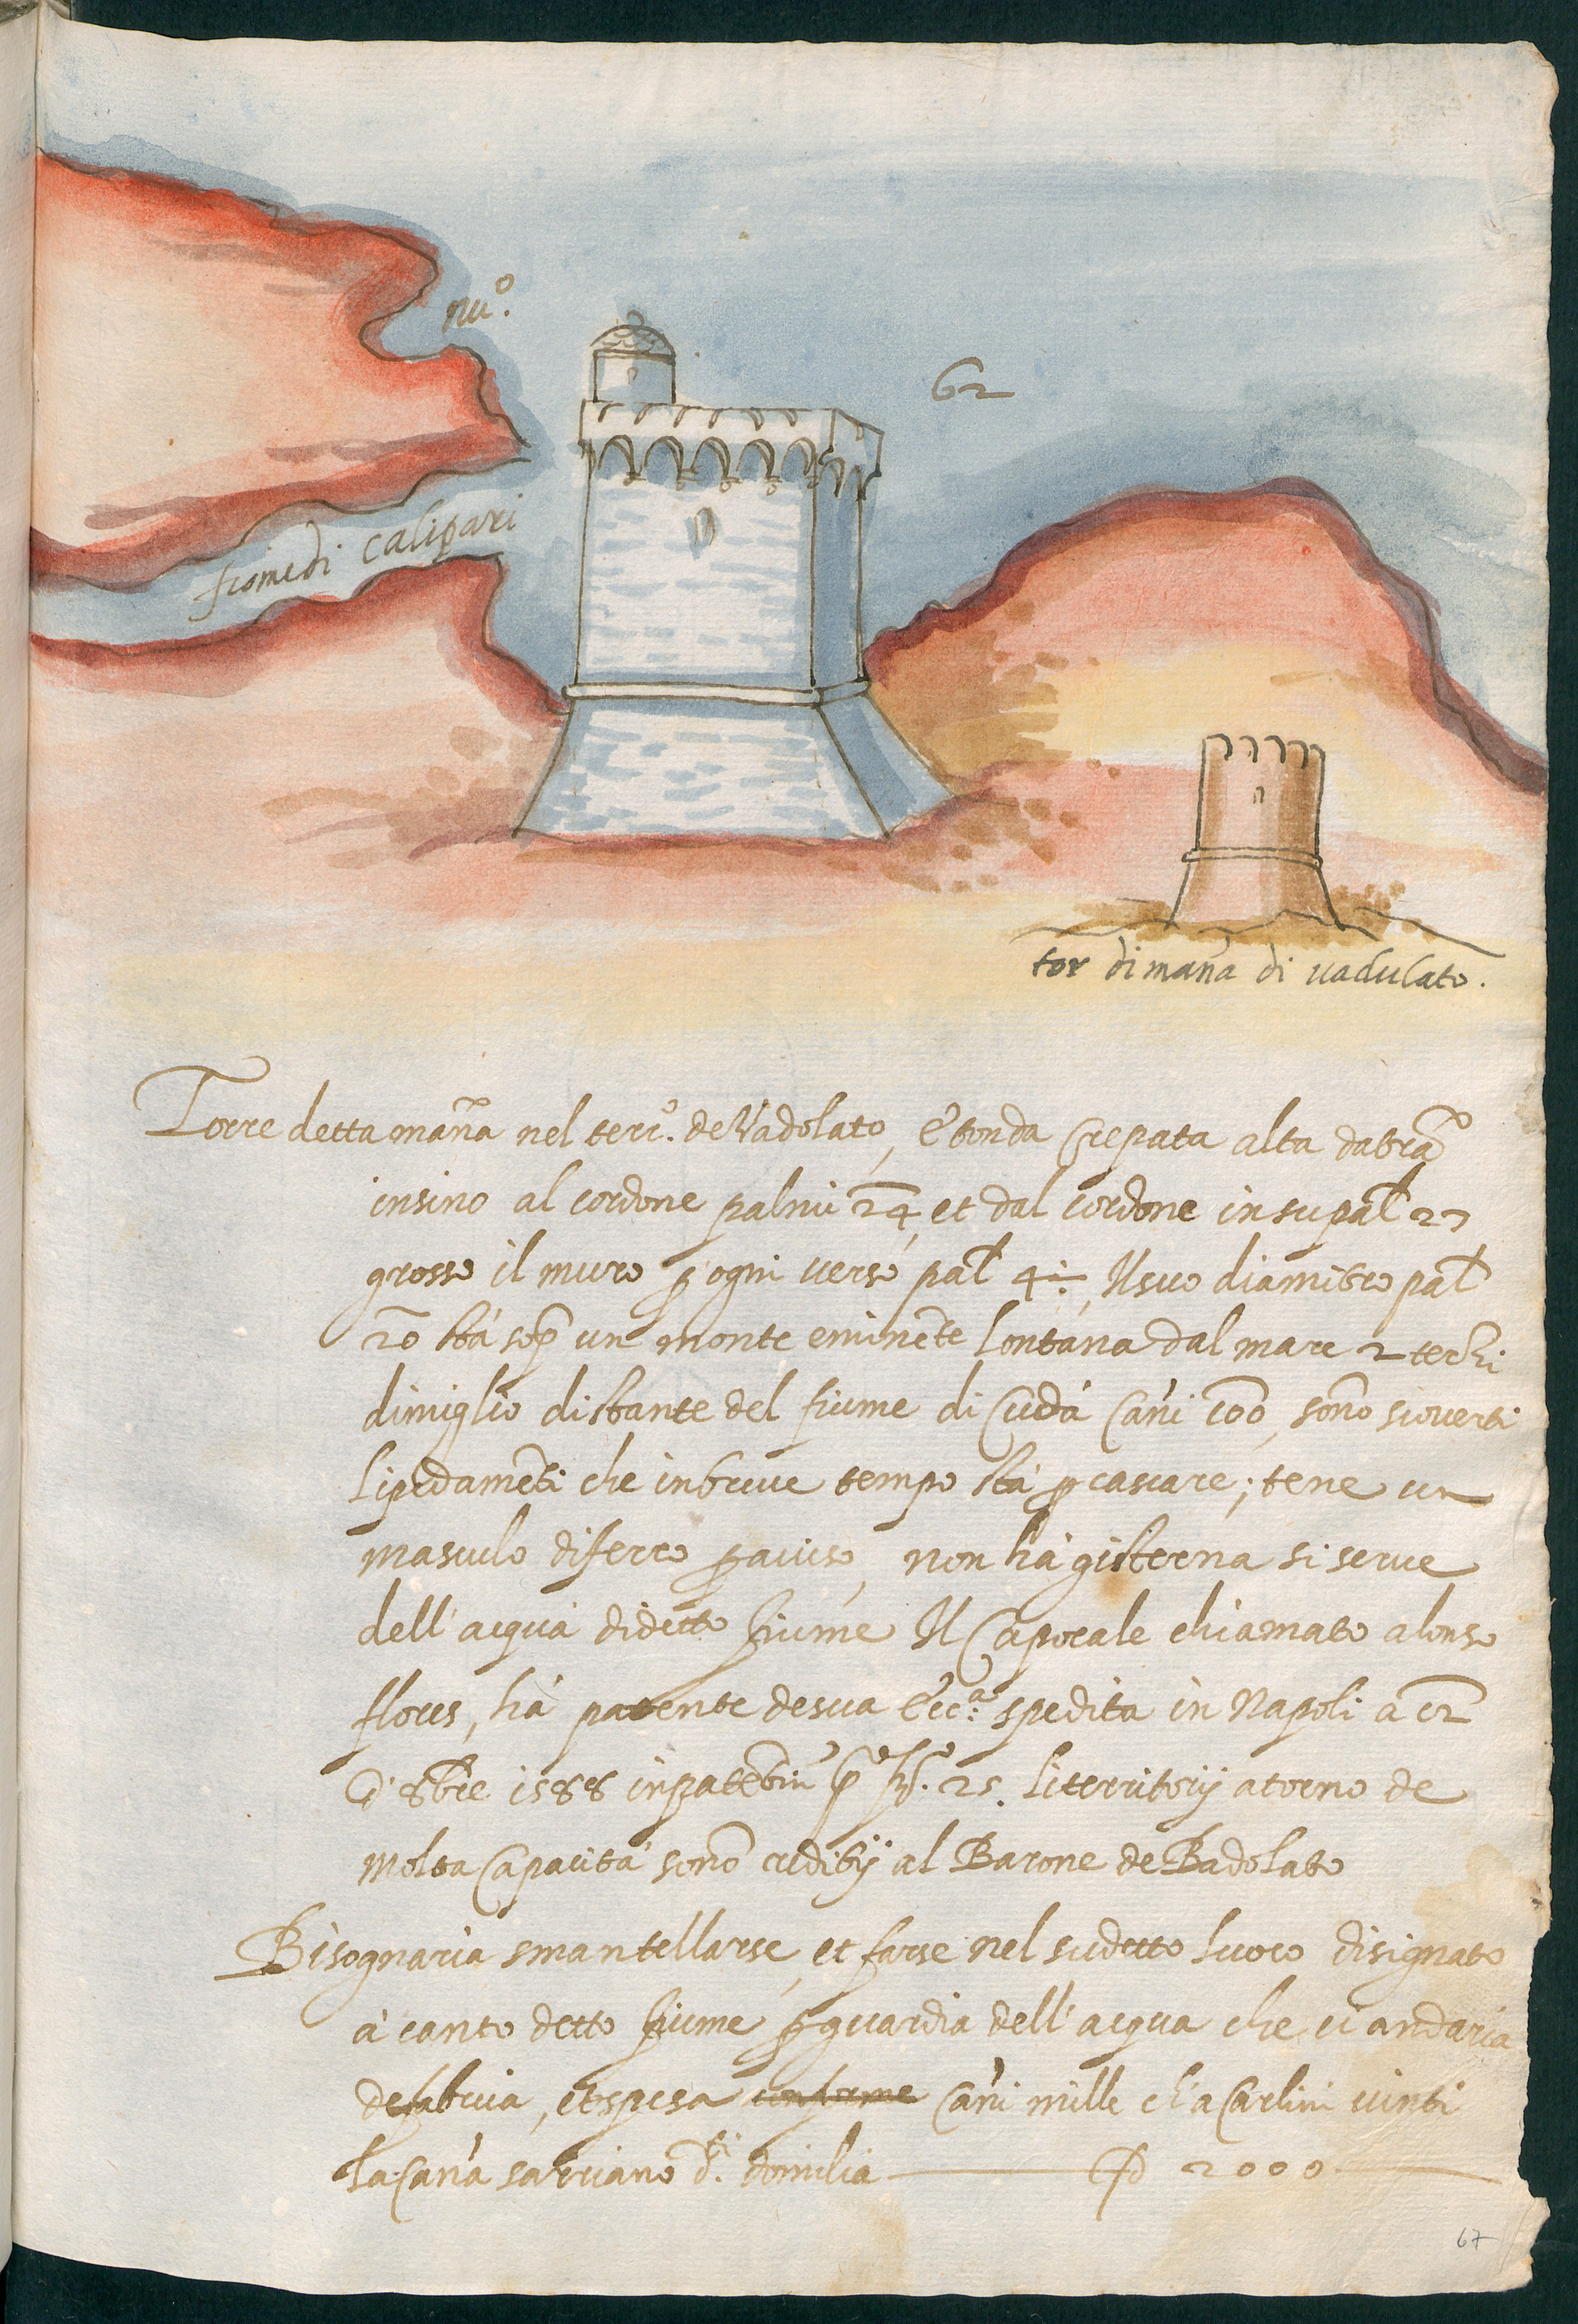 nu.º
62
fiome di calipari
tor di mana di uadulato.
Torre detta mana nel terr.º de Vadolato, è tonda crepata alta da terra
insino al cordone palmi 24, et dal cordone in su pal 27
grosso il muro p ogni uerso pal 4½, Il suo diamitro pal
20 stà sop un monte eminete lontana dal mare 2 terzi
di miglio distante del fiume di Cudà cani 100, sono scouerti
li pedameti che in breue tempo stà p cascare; tene un
masculo di ferro p auiso, non hà gisterna si serue
dell'acqua di detto fiume Il Caporale chiamato alonso
flores, hà patente de sua Ecc.ª spedita in Napoli a 12
d'8bre 1588 in patētiū pº fº. 25. li territorij atorno de
molta Capacità sono redditij al Barone de Badolato
Bisognaria smantellarse, et farse nel sudetto luoco disignato
à canto detto fiume p guardia dell'acqua che ci andaria
de fabrica, et spesa conforme cani mille ch'a Carlini uinti
la cana sarriano d.ti domilia D 2000
67